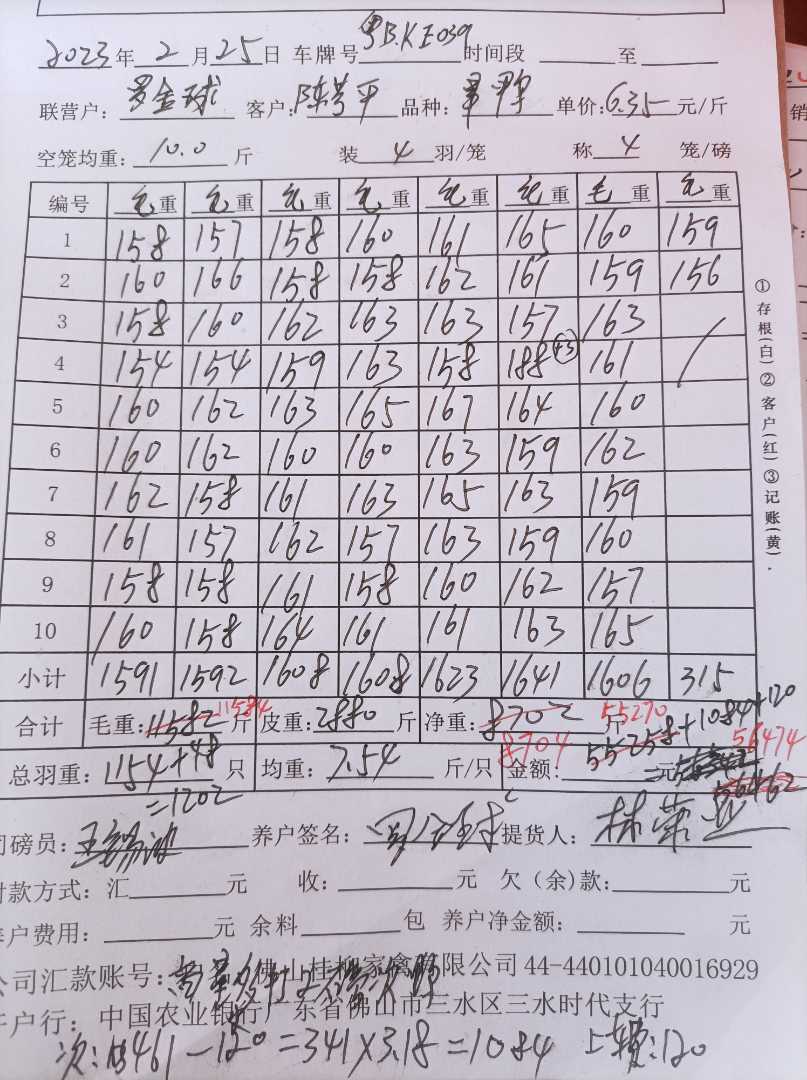 2023年2月25日 车牌号 粤B.KE039 时间段 至
联营户: 罗金球 客户: 陈芳平 品种: 单价: 6.35 元/斤
空笼均重: 10.0 斤 装 4 羽/笼 称 4 笼/磅
编号 毛重 毛重 毛重 毛重 毛重 毛重 毛重 毛重
1 158 157 158 160 161 165 160 159
2 160 166 158 158 162 161 159 156
3 158 160 162 163 163 157 163
4 154 154 159 163 158 188 (43) 161
5 160 162 163 165 167 164 160
6 160 162 160 160 163 159 162
7 162 158 161 163 165 163 159
8 161 157 162 157 163 159 160
9 158 158 161 158 160 162 157
10 160 158 164 161 161 163 165
小计 1591 1592 1608 1608 1623 1641 1606 315
合计 毛重: 11582 11584 斤 皮重: 2880 斤 净重: 8702 8704 斤 55270
总羽重: 1154+48 只 均重: 7.54 斤/只 金额: 55258+1084+120 元 56474
=1202 56462
司磅员: 养户签名: 提货人: 林荣
付款方式: 汇 元 收: 元 欠(余)款: 元
养户费用: 元 余料 包 养户净金额: 元
公司汇款账号: 佛山桂柳家禽有限公司 44-440101040016929
开户行: 中国农业银行广东省佛山市三水区三水时代支行
次: 461-120=341×3.18=1084 120
①存根(白)②客户(红)③记账(黄).
销